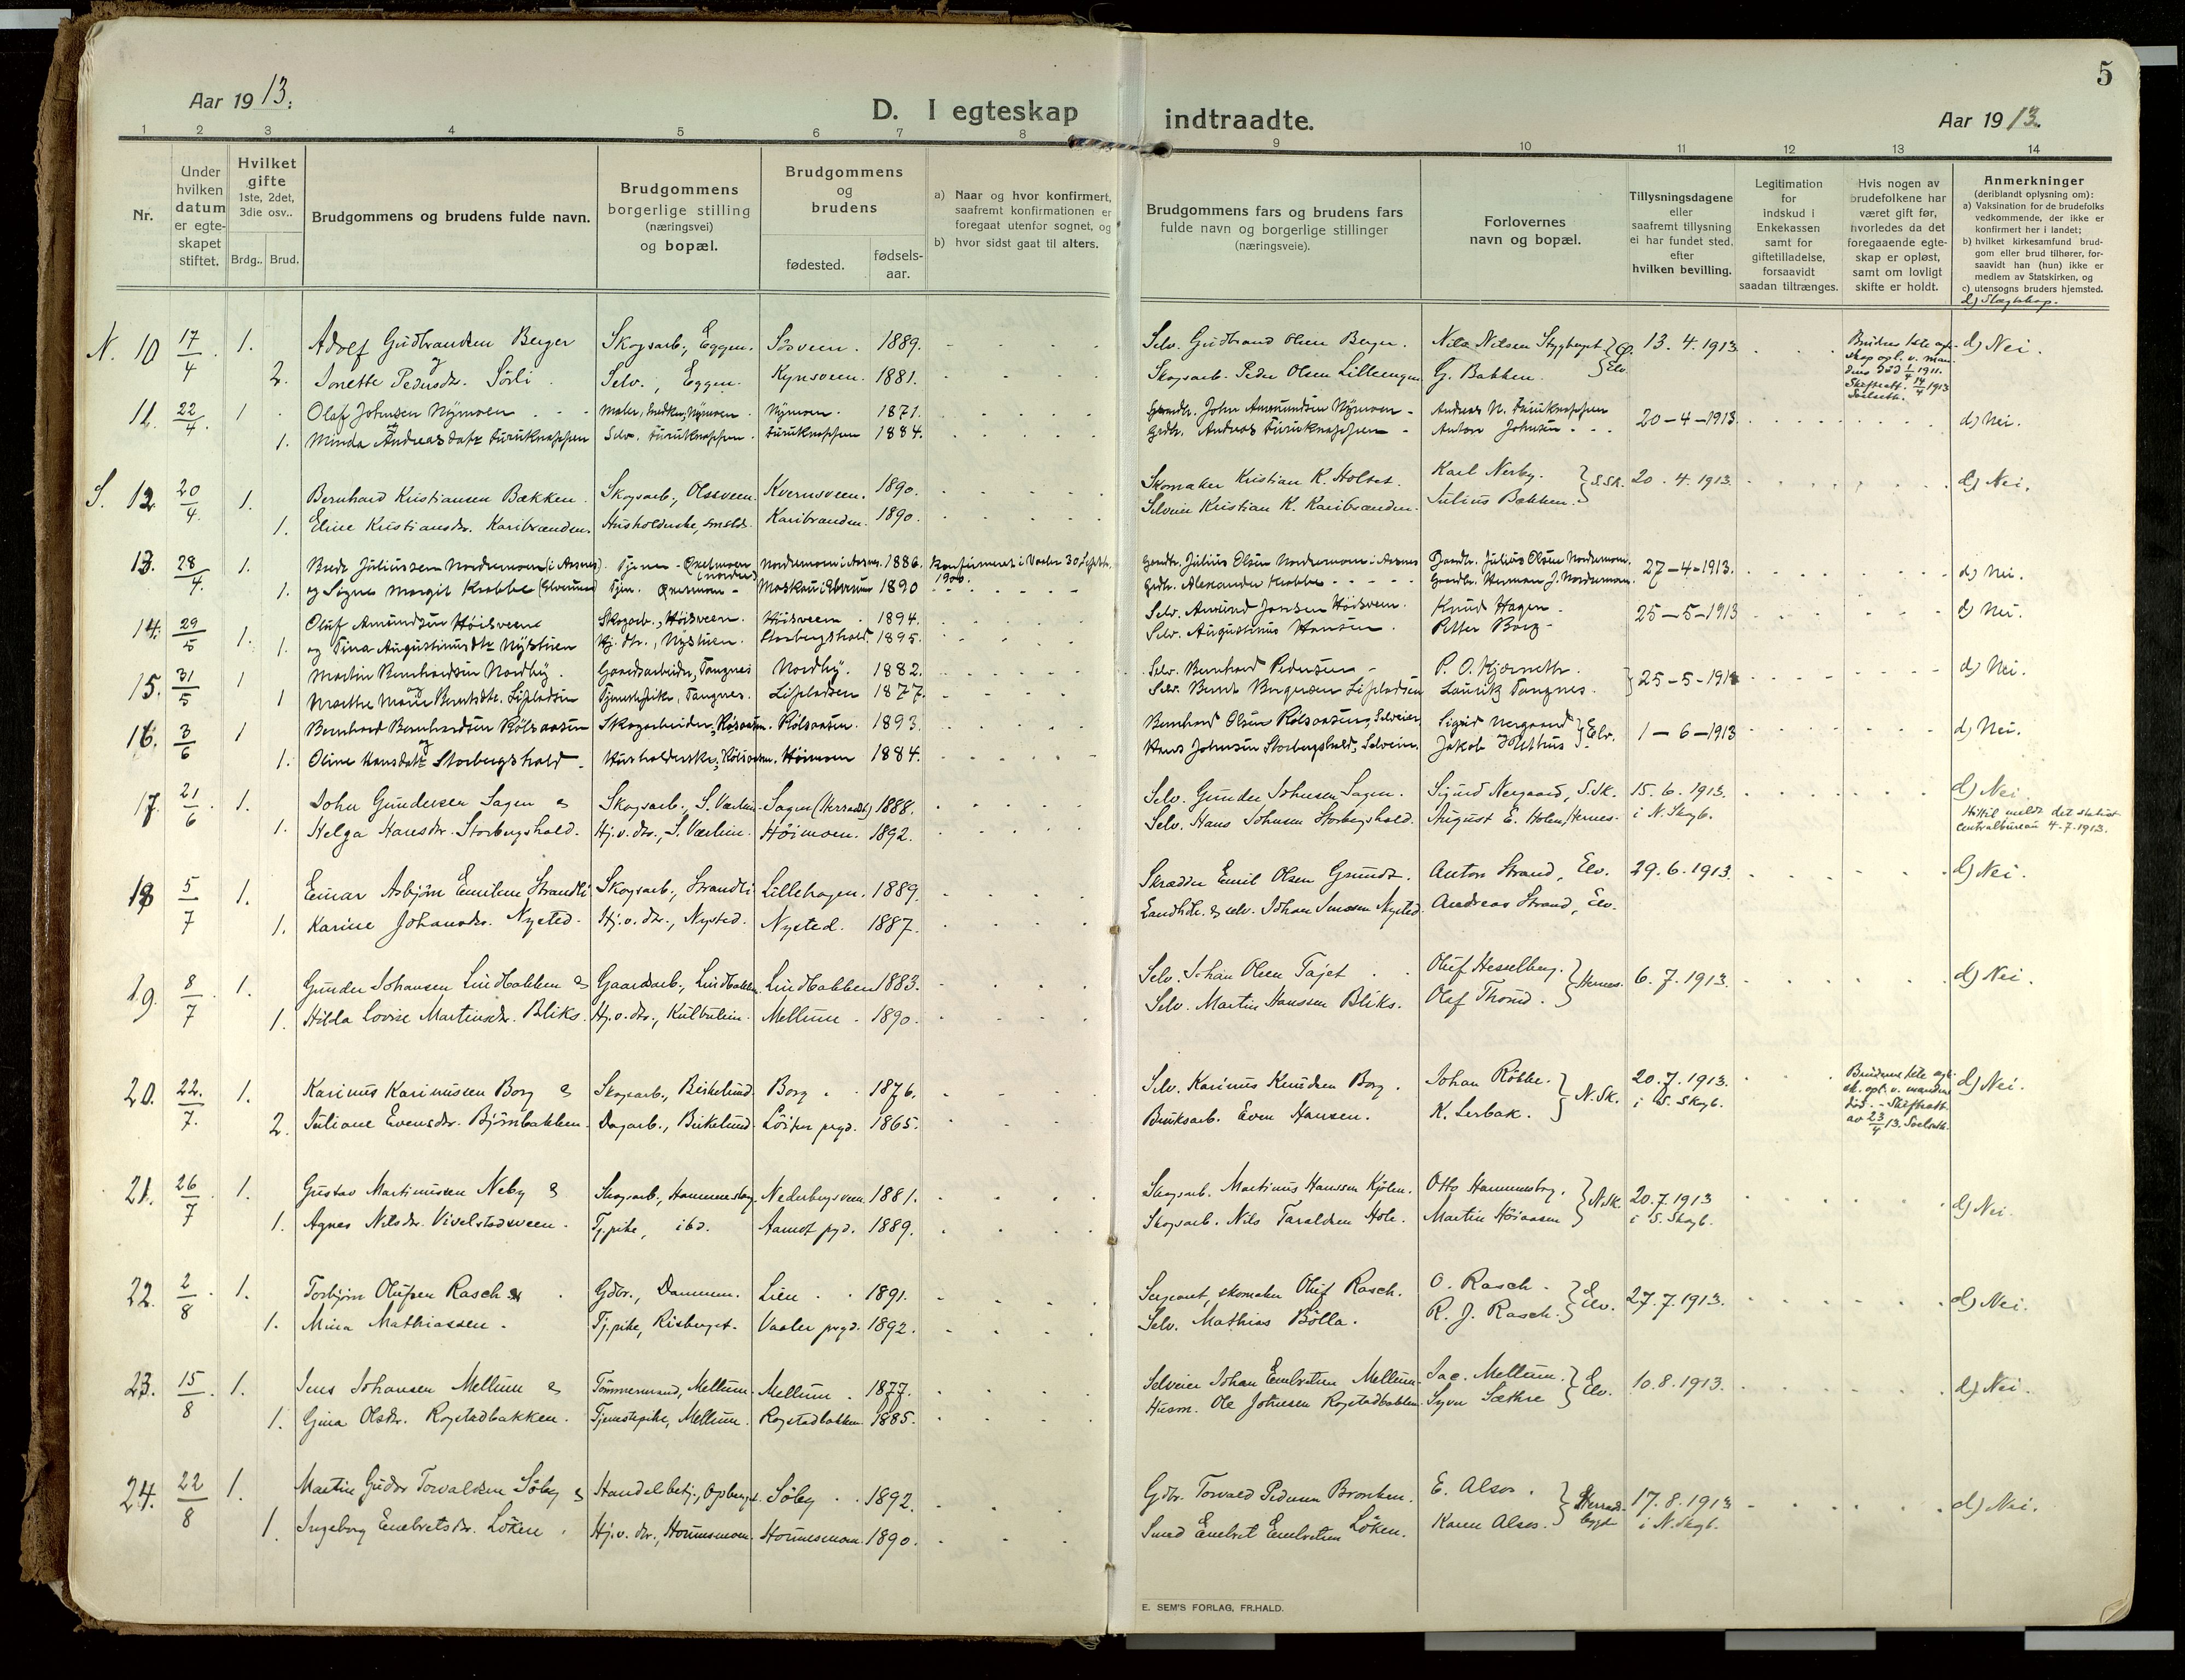 5
Aar 19 13.
D. I egteskap indtraadte.
Aar 19 13.
1 2 3 4 5 6 7 8 9 10 11 12 13 14
Nr.
Under hvilken datum er egte-skapet stiftet.
Hvilket gifte 1ste, 2det, 3die osv..
Brdg.. Brud.
Brudgommens og brudens fulde navn.
Brudgommens borgerlige stilling (næringsvei) og bopæl.
Brudgommens og brudens
fødested.
fødsels-aar.
a) Naar og hvor konfirmert, saafremt konfirmationen er foregaat utenfor sognet, og
b) hvor sidst gaat til alters.
Brudgommens fars og brudens fars fulde navn og borgerlige stillinger (næringsveie).
Forlovernes navn og bopæl.
Tillysningsdagene eller saafremt tillysning ei har fundet sted. efter hvilken bevilling.
Legitimation for indskud i Enkekassen samt for giftetilladelse, forsaavidt saadan tiltrænges.
Hvis nogen av brudefolkene har været gift før, hvorledes da det foregaaende egte-skap er opløst, samt om lovligt skifte er holdt.
Anmerkninger (deriblandt oplysning om):
a) Vaksination for de brudefolks vedkommende, der ikke er konfirmert her i landet;
b) hvilket kirkesamfund brud-gom eller brud tilhører, for-saavidt han (hun) ikke er medlem av Statskirken, og
c) utensogns bruders hjemsted.
d) Slægtskap.
N. 10 17/4 1. Adolf Gudbrandsen Berger Skogsarb., Eggen. Sørveen. 1889. Selv. Gudbrand Olsen Berger. Nils Nilsen Stygberget 13.4.1913. Brudens 1ste egte- d) Nei.
og skap opl. v. man-
2. Jonette Pedersdr. Sörli Selv., Eggen. Kynsveen. 1881. Skogsarb. Peder Olsen Lilleengen G. Bakken. Elv. dens død 1/4 1911.
Skifteatt. 14/4 1913
11. 22/4 1 Olaf Johnsen Nÿmoen Maler, Snedker, Nÿmoen. Nÿmoen. 1871. Gaardbr. John Amundsen Nÿmoen Andreas N. Furuknappen 20-4-1913. d) Nei.
og
1. Minda Andreasdatr Furuknappen Selv. Furuknappen. Furuknappen 1884. Grdbr. Andreas Furuknappen Anton Johnsen
S. 12. 20/4. 1. Bernhard Kristiansen Bækken. Skogsarb., Olssveen. Kvernsveen. 1890. Skomaker Kristian K. Holset. Karl Nerby. S.Sk. 20.4.1913. d) Nei.
1. Eline Kristiansdr. Karibrænden. Husholderske, smstds. Karibranden. 1890. Selveier Kristian K. Karibrænden. Julius Bækken.
13. 28/4. 1. Juliussen Nordermoen (i Aasnes) Tjener - Nordermoen i Aasnes. 1886. Konfirmeret i Vaaler 30 Septbr. 1900. Gaardbr. Julius Olsen Nordermoen i Aasnes Gaardbr. Julius Olsen Nordermoen. 27-4-1913. d) Nei.
1. og Signe Margit Krabbe (Elverum) Tjen. Moskau i Elverum 1890 Grdbr. Alexander Krabbe Gaardbr. Herman J. Nordermoen.
14. 29/5 1. Oluf Amundsen Höisveen Skogarb., Höisveen. Höisveen. 1894. Selv. Amund Jonsen Höisveen. Knud Hagen. 25-5-1913 d) Nei.
1. og Tina Augustinusdtr Nÿstuen Hj. dtr., Nÿstuen. Storbergshold. 1895. Selv. Augustinus Hansen. Petter Borg.
15. 31/5 1 Martin Bernhardsen Nordbÿ. Gaardsarbeider, Tangnes Nordbÿ. 1882. Selv. Bernhard Pedersen P. O. Kjærneth. 25-5-191 d) Nei.
og
1 Marthe Marie Berntsdtr. Lifpladsen Tjenestepike, Tangnes. Lifpladsen 1877. Selv. Bernt Borgersen Lifpladsen Lauritz Tangnes.
16. 3/6 1 Bernhard Bernhardsen Rölsaasen Skogarbeider, Rölsaasen. Rölsaasen. 1893. Bernhard Olsen Rölsaasen, Selveier. Sigvid Nergaard Elv. 1-6-1913 d) Nei.
og
1. Oline Hansdatr Storbergshold. Husholderske, Rölsaasen. Höimoen 1884. Hans Johnsen Storbergshold, Selveier. Jakob Holthus
17. 21/6 1. John Gundersen Sagen & Skogsarb., S. Værlien. Sagen (Herradsb.) 1888. Selv. Gunder Johnsen Sagen. Sigurd Nergaard, S.Sk. 15.6.1913. d) Nei.
1. Helga Hansdr. Storbergshold. Hj.v.dtr., S. Værlien. Höimoen. 1892. Selv. Hans Johnsen Storbergshold. August E. Holen, Hernes. i N. Skogb. Hittil meldt det statist. Centralbureau 4.7.1913.
18 5/7 1. Einar Asbjörn Emilsen Strandli Skogsarb., Strandli Lillehagen. 1889. Skrædder Emil Olsen Grundt. Anton Strand, Elv. 29.6.1913. d) Nei.
1. Karine Johansdr. Nysted. Hj.v.dtr., Nysted. Nysted. 1887. Landhdlr. & selv. Johan Nysted. Andreas Strand, Elv.
19. 8/7 1. Gunder Johansen Lindbakken & Gaardsarb., Lindbakken. Lindbakken 1883. Selv. Johan Olsen Tajet Oluf Hesselberg. Hernes. 6.7.1913. d) Nei.
1. Hilda Lovise Martinsdr. Bliks. Hj.v.dtr., Kulbulien. Mellum. 1890. Selv. Martin Hanssen Bliks. Olaf Thorud.
20. 22./7. 1. Karinus Karinussen Borg & Skogsarb., Birkelund. Borg. 1876. Selv. Karinus Knudsen Borg. Johan Röbbe. N.Sk. 20.7.1913. Brudens 1ste egte- d) Nei.
sk. opl. v. mandens
2. Juliane Evensdr. Björnbakken. Dagarb., Birkelund. Löiten prgd. 1865. Bruksarb. Even Hansen. K. Lerbak. i S. Skogb. død. - Skifteatt. av 23/4 13.
21. 26/7 1. Gustav Martinussen Neby & Skogsarb., Hammersberg. Nederbergsveen. 1881. Skogsarb. Martinus Hanssen Kjölen. Otto Hammersberg. N.Sk. 20.7.1913 d) Nei.
1. Agnes Nilsdr. Vivelstadsveen. Tj.pike, ibd. Aamot pgd. 1889. Skogsarb. Nils Taraldsen Hole. Martin Höiaasen i S. Skogb.
22. 2/8 1. Torbjörn Olufsen Rasch & Gdbr., Dammen. Lien. 1891. Sergeant, skomaker Oluf Rasch. O. Rasch. Elv. 27.7.1913. d) Nei.
1. Mina Mathiassen. Tj.pike, Risberget. Vaaler prgd. 1892. Selv. Mathias Bölla. R. J. Rasch.
23. 15/8 1. Jens Johansen Mellum & Tömmermand, Mellum. Mellum. 1877. Selveier Johan Embretsen Mellum. Jac. Mellum. Elv. 10.8.1913. d) Nei.
1. Gina Olsdr. Rogstadbakken. Tjenestepike, Mellum. Rogstadbakken 1885. Husm. Ole Johnsen Rogstadbakken. Syver Sæthre
24. 22/8 1. Martin Gudor Torvaldsen Söby & Handelsbetj., Opberget. Söby 1892. Gdbr. Torvald Pedersen Bronken. E. Alsos. Herrads-bygd 17.8.1913 d) Nei.
1. Ingeborg Embretsdr. Löken. Hj.v.dtr., Hornesmoen. Hornesmoen. 1890. Smed Embret Embretsen Löken. Karen Alsos. i N. Skogb.
E. SEM'S FORLAG, FR.HALD.